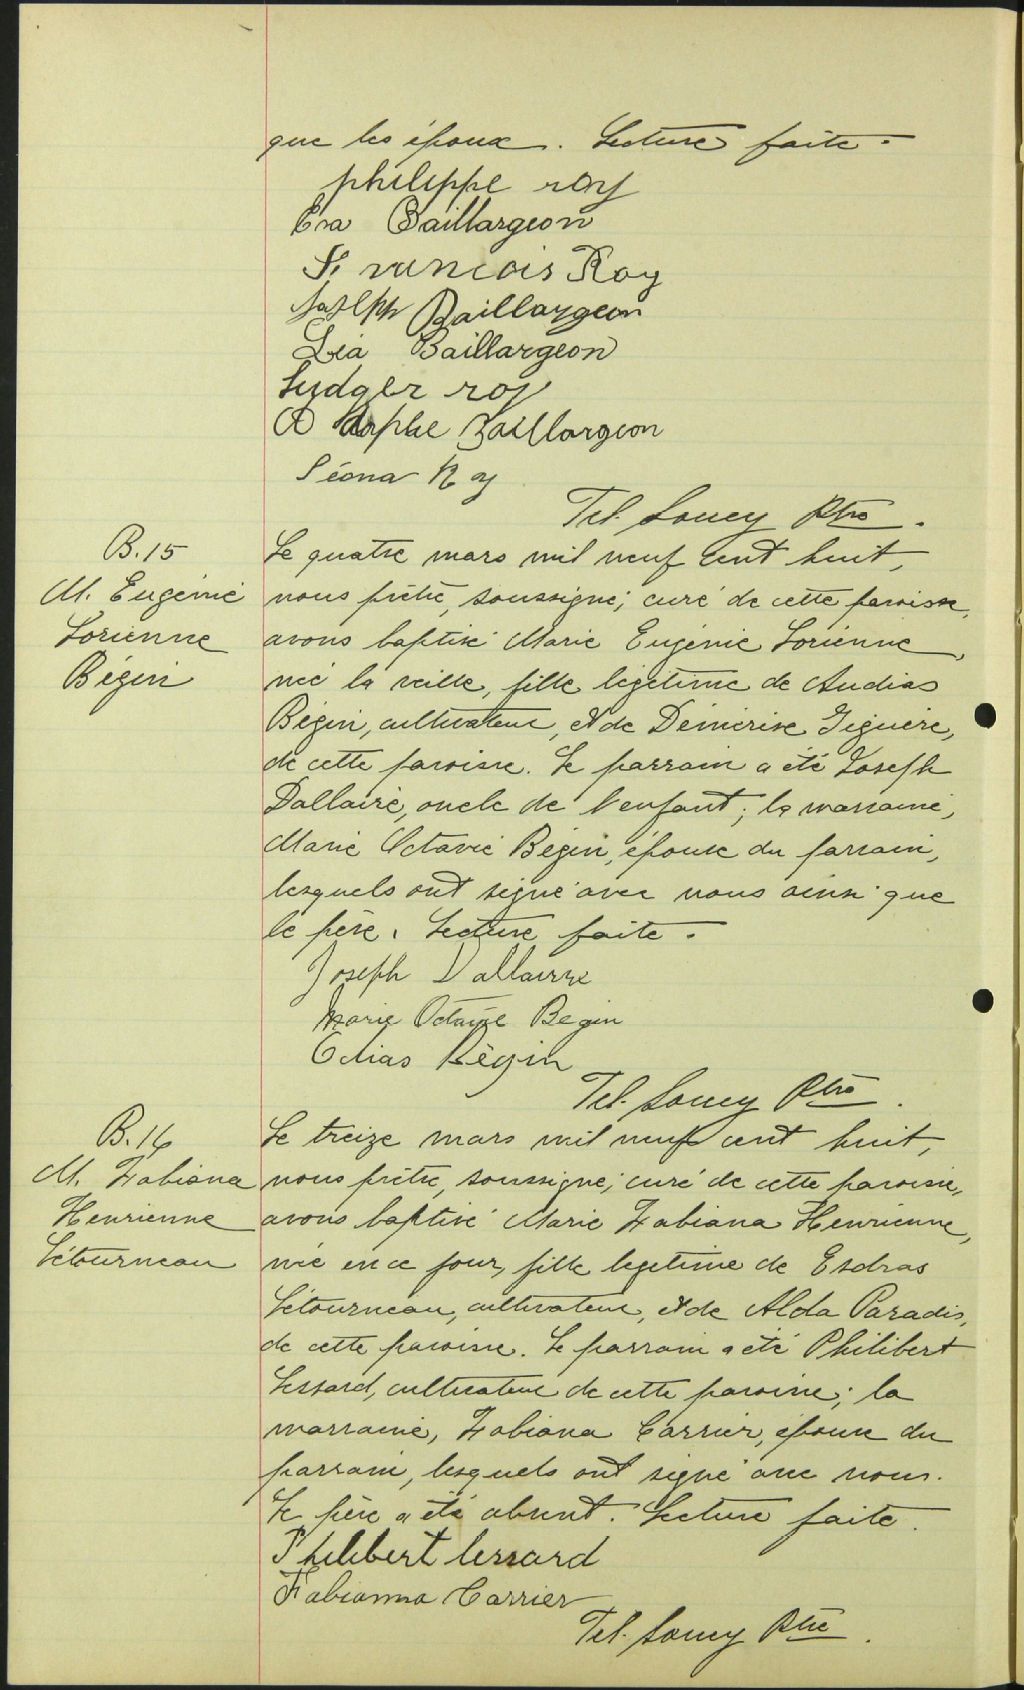 que les époux. Lecture faite.
philippe roy
Eva Baillargeon
François Roy
Joseph Baillargeon
Léa Baillargeon
Ludger roy
Adolphe Baillargeon
Léona Roy
Tel. Soucy Ptre.
B.15
M. Eugénie
Lorienne
Bégin
Le quatre mars mil neuf cent huit,
nous prêtre, soussigné, curé de cette paroisse,
avons baptisé Marie Eugénie Lorienne,
née la veille, fille légitime de Audias
Bégin, cultivateur, et de Démérise Giguère,
de cette paroisse. Le parrain a été Joseph
Dallaire, oncle de l'enfant; la marraine,
Marie Octavie Bégin, épouse du parrain,
lesquels ont signé avec nous ainsi que
le père. Lecture faite.
Joseph Dallaire
Marie Octavie Begin
Bégin
Tel. Soucy Ptre.
B.16
M. Fabiana
Henrienne
Létourneau
Le treize mars mil neuf cent huit,
nous prêtre, soussigné, curé de cette paroisse,
avons baptisé Marie Fabiana Henrienne,
née en ce jour, fille légitime de Esdras
Létourneau, cultivateur, et de Alda Paradis,
de cette paroisse. Le parrain a été Philibert
Lessard, cultivateur de cette paroisse; la
marraine, Fabiana Carrier, épouse du
parrain, lesquels ont signé avec nous.
Le père a été absent. Lecture faite.
Philibert lessard
Fabianna Carrier
Tel. Soucy Ptre.